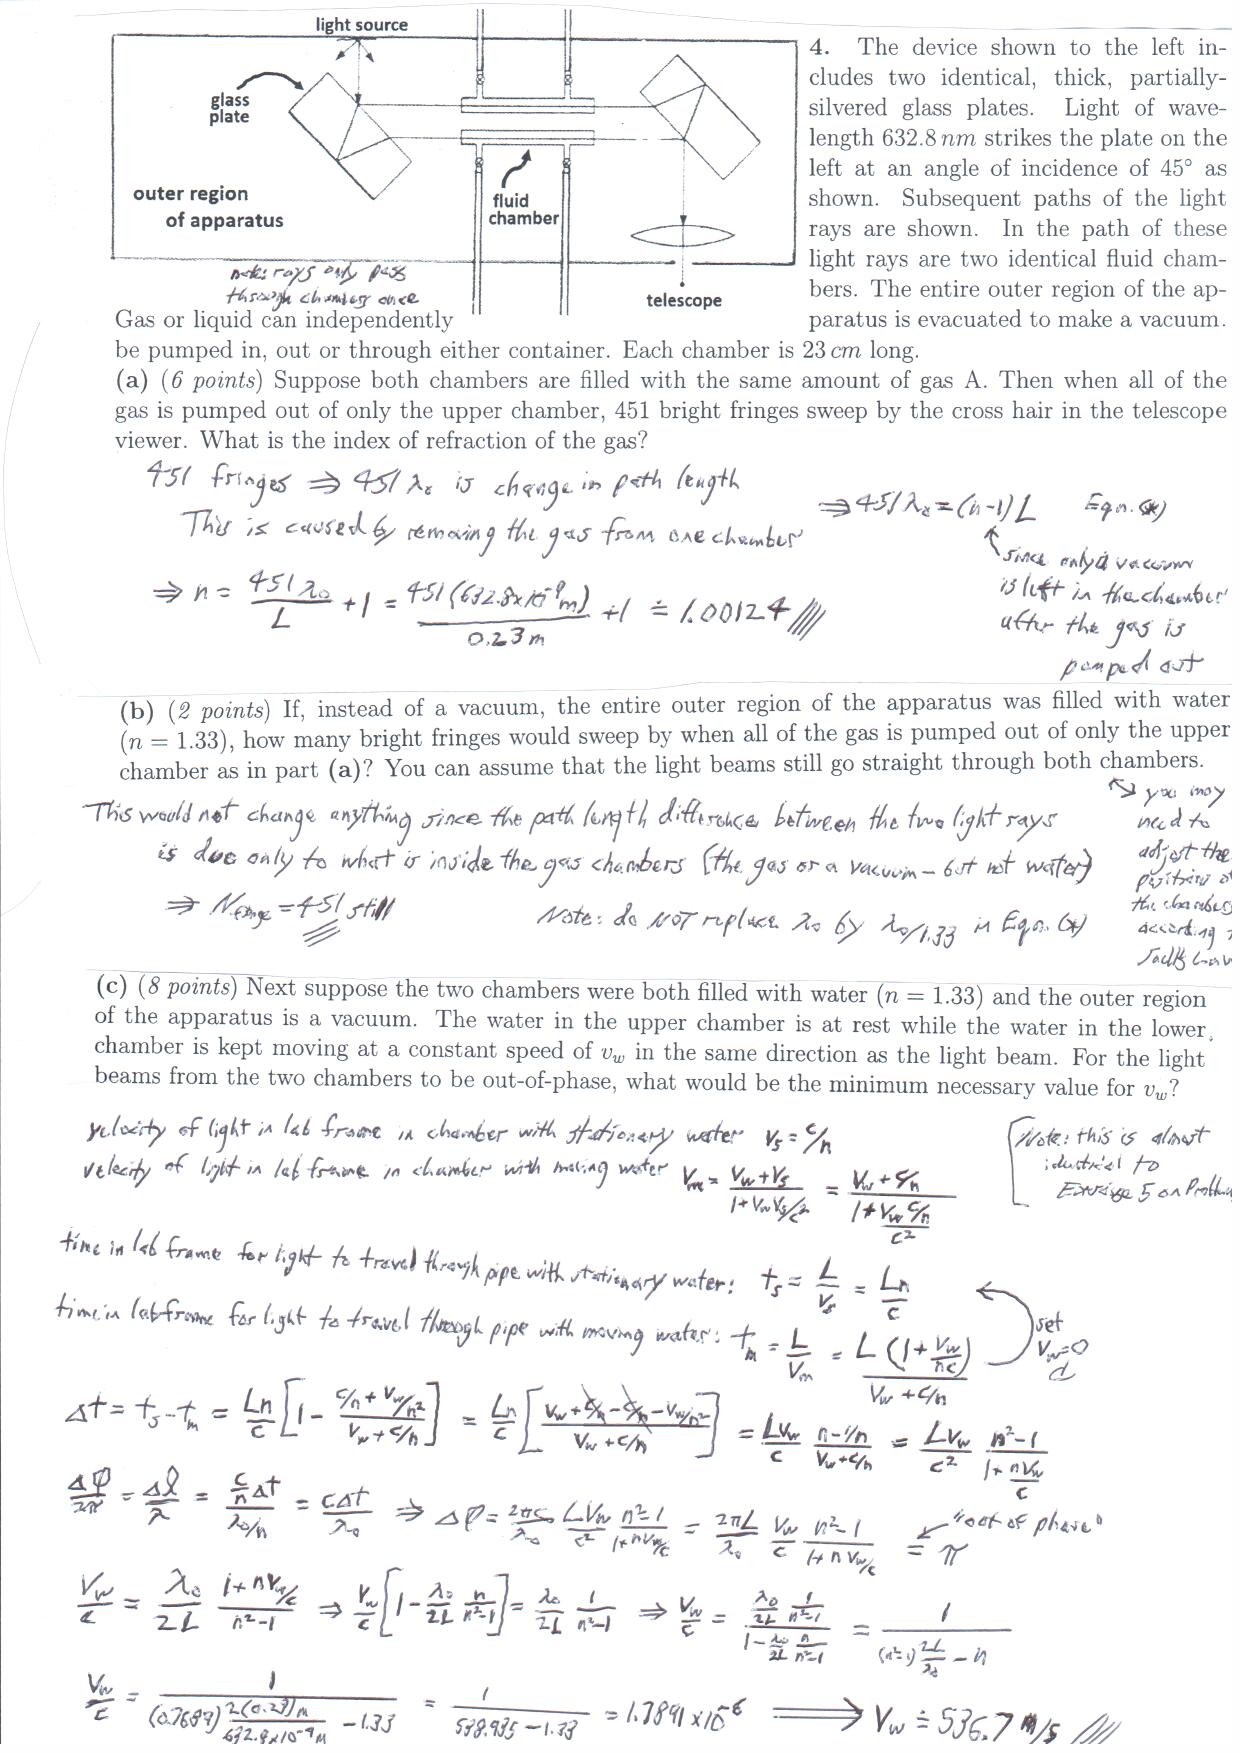 light source
glass
plate
outer region
of apparatus
fluid
chamber
telescope
note: rays only pass
through chambers once
4. The device shown to the left in-
cludes two identical, thick, partially-
silvered glass plates. Light of wave-
length 632.8 nm strikes the plate on the
left at an angle of incidence of 45° as
shown. Subsequent paths of the light
rays are shown. In the path of these
light rays are two identical fluid cham-
bers. The entire outer region of the ap-
Gas or liquid can independently paratus is evacuated to make a vacuum.
be pumped in, out or through either container. Each chamber is 23 cm long.
(a) (6 points) Suppose both chambers are filled with the same amount of gas A. Then when all of the
gas is pumped out of only the upper chamber, 451 bright fringes sweep by the cross hair in the telescope
viewer. What is the index of refraction of the gas?
451 fringes ⇒ 451 λ₀ is change in path length
This is caused by removing the gas from one chamber
⇒ 451 λ₀ = (n-1) L Eqn. (*)
since only a vacuum
is left in the chamber
after the gas is
pumped out
⇒ n = 451 λ₀ / L + 1 = 451 (632.8x10⁻⁹ m) / 0.23 m + 1 ≐ 1.00124
(b) (2 points) If, instead of a vacuum, the entire outer region of the apparatus was filled with water
(n = 1.33), how many bright fringes would sweep by when all of the gas is pumped out of only the upper
chamber as in part (a)? You can assume that the light beams still go straight through both chambers.
you may
need to
adjust the
positions of
the chambers
according
This would not change anything since the path length difference between the two light rays
is due only to what is inside the gas chambers (the gas or a vacuum - but not water)
⇒ Nfringe = 451 still
Note: do NOT replace λ₀ by λ₀/1.33 in Eqn. (*)
(c) (8 points) Next suppose the two chambers were both filled with water (n = 1.33) and the outer region
of the apparatus is a vacuum. The water in the upper chamber is at rest while the water in the lower
chamber is kept moving at a constant speed of v_w in the same direction as the light beam. For the light
beams from the two chambers to be out-of-phase, what would be the minimum necessary value for v_w?
velocity of light in lab frame in chamber with stationary water Vs = c/n
velocity of light in lab frame in chamber with moving water Vm = (Vw + Vs) / (1 + VwVs/c²) = (Vw + c/n) / (1 + Vw c/n / c²)
Note: this is almost
identical to
Exercise 5 on Problem
time in lab frame for light to travel through pipe with stationary water: ts = L/Vs = Ln/c
time in lab frame for light to travel through pipe with moving water: tm = L/Vm = L (1 + Vw/nc) / (Vw + c/n)
set
Vw=0
Δt = ts - tm = Ln/c [1 - (c/n + Vw/n²) / (Vw + c/n)] = Ln/c [(Vw + c/n - c/n - Vw/n²) / (Vw + c/n)] = LVw/c (n - 1/n) / (Vw + c/n) = LVw/c² (n²-1) / (1 + nVw/c)
Δφ/2π = Δl/λ = (c/n Δt) / (λ₀/n) = cΔt/λ₀ ⇒ Δφ = 2πc/λ₀ LVw/c² (n²-1) / (1 + nVw/c) = 2πL/λ₀ Vw/c (n²-1) / (1 + nVw/c) = π
"out of phase"
Vw/c = λ₀/2L (1 + nVw/c) / (n²-1) ⇒ Vw/c [1 - λ₀/2L n/(n²-1)] = λ₀/2L 1/(n²-1) ⇒ Vw/c = (λ₀/2L 1/(n²-1)) / (1 - λ₀/2L n/(n²-1)) = 1 / ((n²-1) 2L/λ₀ - n)
Vw/c = 1 / ((0.7689) 2(0.23)m / 632.8x10⁻⁹m - 1.33) = 1 / (538.935 - 1.33) = 1.7891 x10⁻⁶ ⟹ Vw ≐ 536.7 m/s